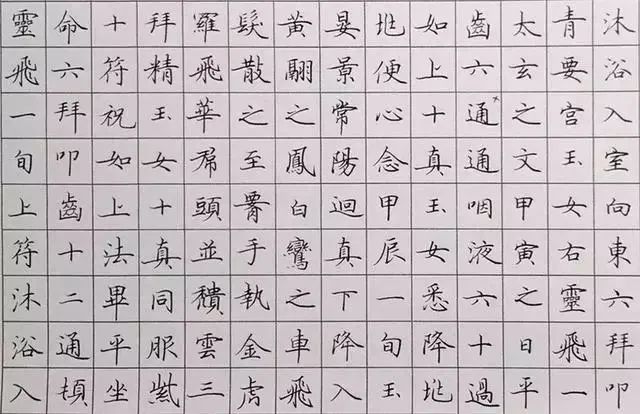 沐浴入室向東六拜叩
青要宮玉女右靈飛一
太玄之文甲寅之日平
齒六通通咽液六十過
如上十真玉女悉降地
地便心念甲辰一旬玉
晏景常陽迴真下降入
黃翮之鳳白鸞之車飛
髮散之至腰手執金虎
羅飛華帬頭並穨雲三
拜精玉女十真同服紫
十符祝如上法畢平坐
命六拜叩齒十二通頓
靈飛一旬上符沐浴入